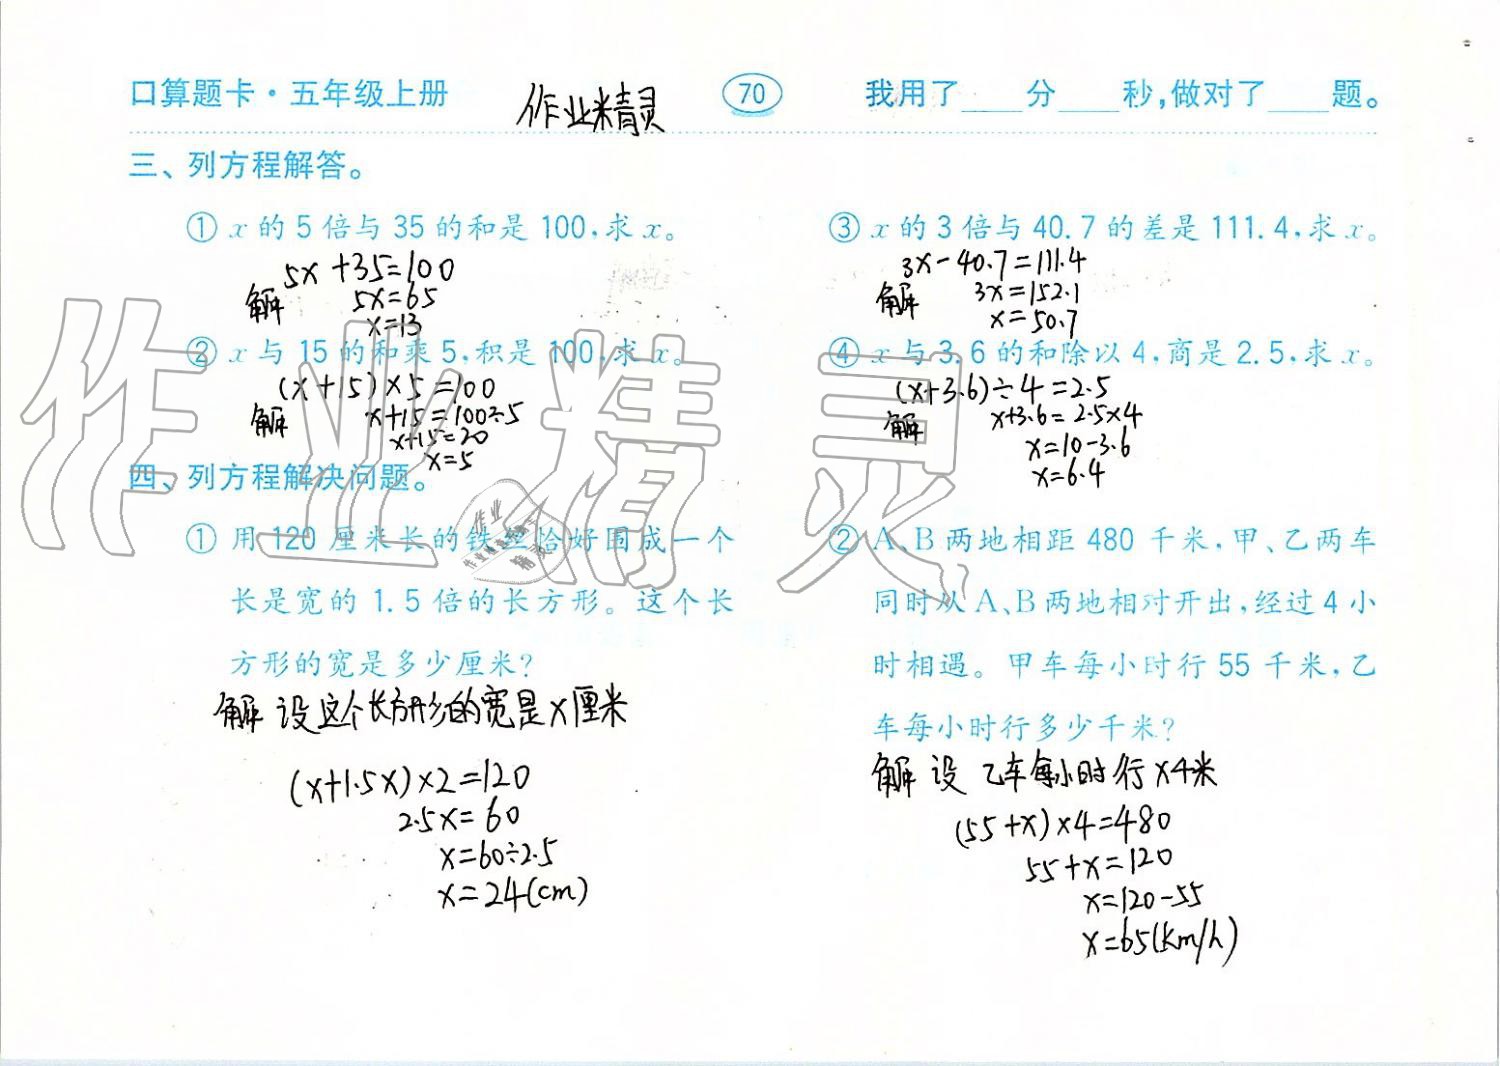 口算题卡·五年级上册 作业精灵 70 我用了____分____秒,做对了____题。
三、列方程解答。
① x 的 5 倍与 35 的和是 100,求 x。
5x+35=100
解 5x=65
x=13
② x 与 15 的和乘 5,积是 100,求 x。
(x+15)×5=100
解 x+15=100÷5
x+15=20
x=5
③ x 的 3 倍与 40.7 的差是 111.4,求 x。
3x-40.7=111.4
解 3x=152.1
x=50.7
④ x 与 3.6 的和除以 4,商是 2.5,求 x。
(x+3.6)÷4=2.5
解 x+3.6=2.5×4
x=10-3.6
x=6.4
四、列方程解决问题。
① 用 120 厘米长的铁丝恰好围成一个
长是宽的 1.5 倍的长方形。这个长
方形的宽是多少厘米?
解 设这个长方形的宽是x厘米
(x+1.5x)×2=120
2.5x=60
x=60÷2.5
x=24(cm)
② A、B 两地相距 480 千米,甲、乙两车
同时从 A、B 两地相对开出,经过 4 小
时相遇。甲车每小时行 55 千米,乙
车每小时行多少千米?
解 设 乙车每小时行x千米
(55+x)×4=480
55+x=120
x=120-55
x=65(km/h)
作业精灵